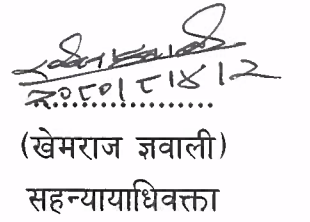 २०८०।८।४।२
.....................
(खेमराज ज्ञवाली)
सहन्यायाधिवक्ता